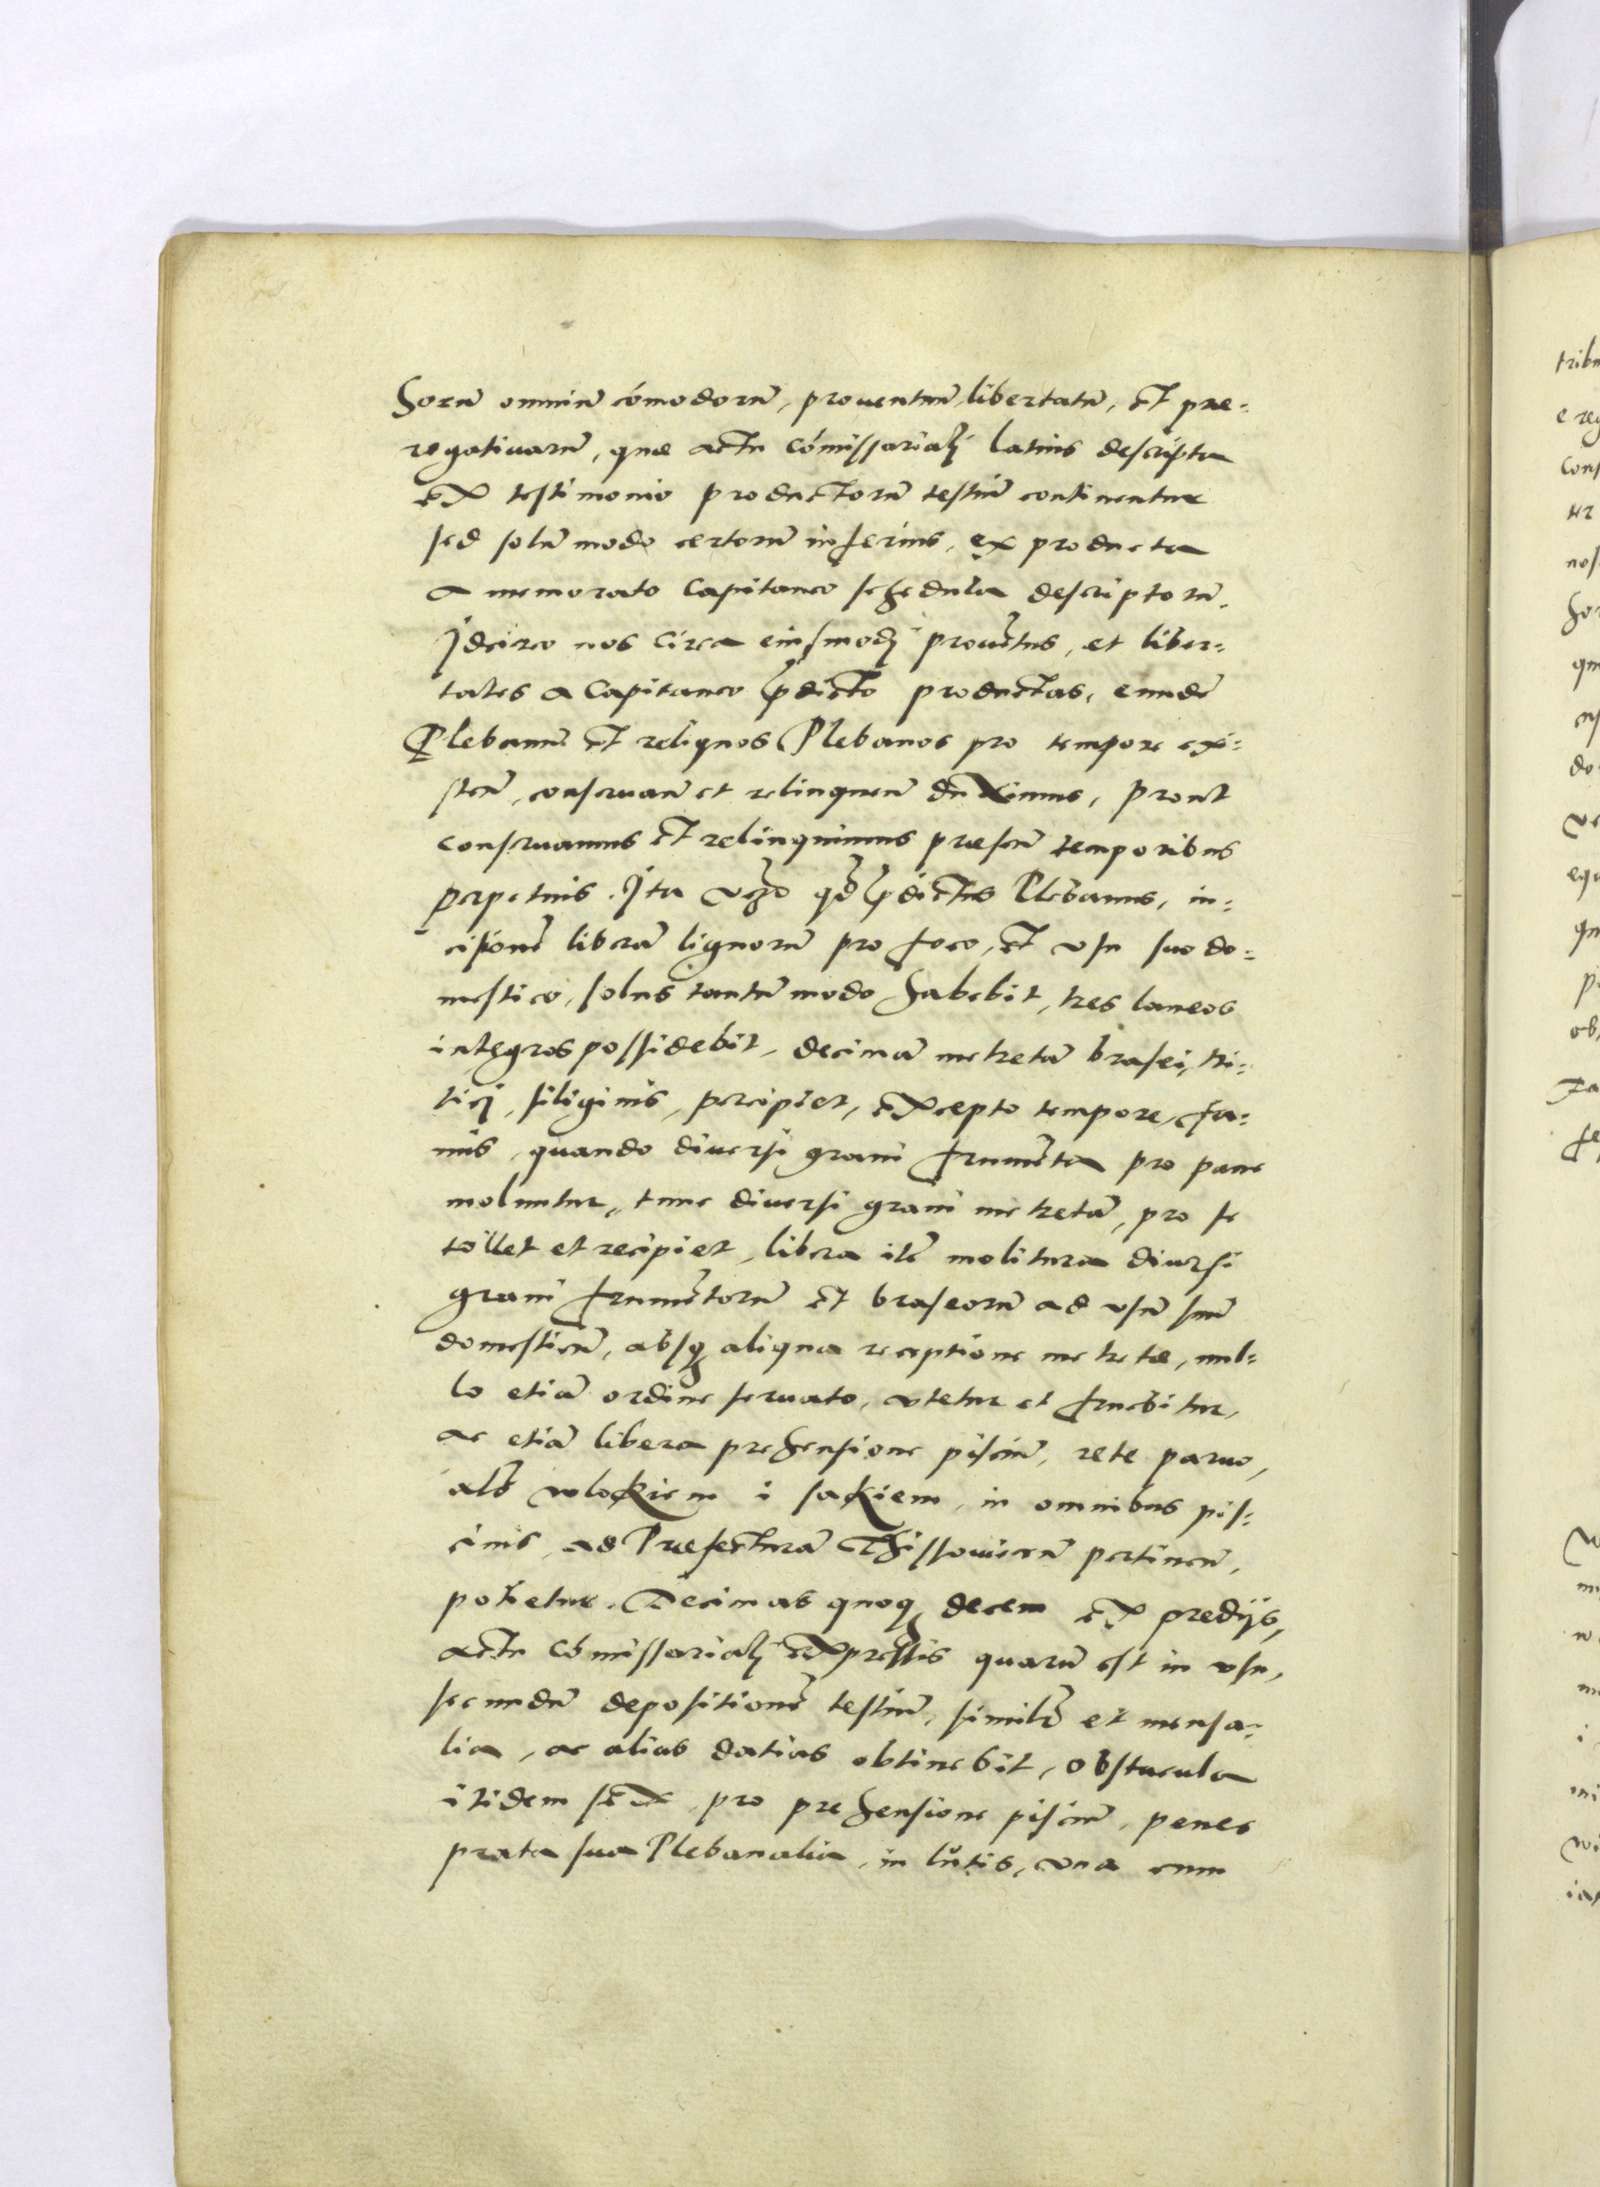 horū omniū cōmodorū, prouentuū libertatū, et pre-
rogatiuarū, quæ actu cōmissariali latius descripta
ex testimonio productorū testiū continentur
sed solūmodo certorum inferius, ex producta
a memorato Capitaneo schedula descriptorū.
Idcirco nos circa eiusmodi prouētus, et liber-
tates a Capitaneo p̄dicto productas, eundē
Plebanū et reliquos Plebanos pro tempore exi-
sten̄, conseruan̄ et relinquen̄ duximus, prout
conseruamus et relinquimus præsen̄ temporibus
perpetuis. Ita vero qđ p̄dictus Plebanus, in-
cisionē liberā lignorū pro foco, et vsu suo do-
mestico, solus tantūmodo habebit, tres laneos
integros possidebit, decimā metretā brasei, tri-
tici, siliginis, percipiet, excepto tempore, fa-
mis, quando diuersi grani frumēta pro pane
moluntur, tunc diuersi grani metretā, pro se
tollet et recipiet, libera itē molitura diuersi
grani frumētorū et braseorū ad vsū suū
domesticū, absq aliqua receptione metretæ, nul-
lo etiā ordine seruato, vtetur et fruebitur,
ac etiā libera prehensione pisciū, rete paruo,
als wlokiem i sakiem, in omnibus pis-
cinis, ad Præfecturā Thissouicen̄ pertinen̄,
potietur. Decimas quoq decem ex predijs,
actu cōmissariali expressis quarū est in vsu,
secundū depositionē testiū, similr̄ et mensa-
lia, ac alias datias obtinebit, obstacula
itidem sex, pro prehensione pisciū, penes
prata sua Plebanalia, in lutis, vna cum